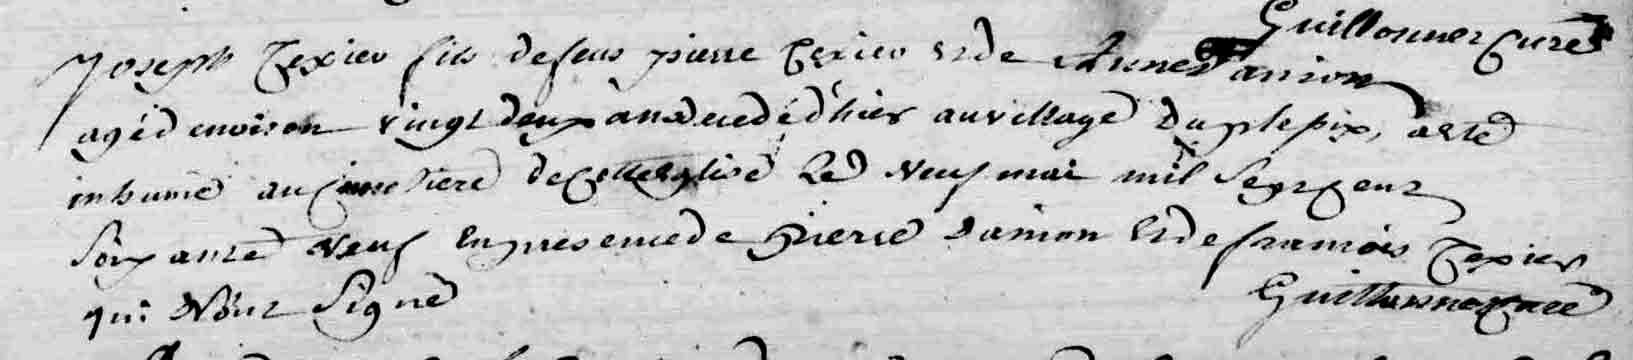 Guillonner Curé
Joseph Texier fils defeu pierre Texier et de Anne Danion
agé denviron vingt deux ans decedé d'hier au village Du plepix, a eté
inhumé au Cimetiere de Cette Eglise Le neuf mai mil Sept Cent
Soixante neuf En presence de pierre Danion Et de francois Texier
qui N'ont Signé Guillonner Curé